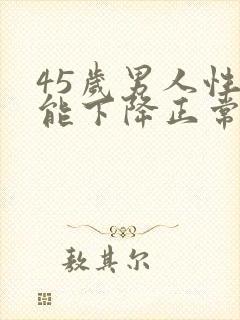 45歲男人性
能下降正常
敖其尔